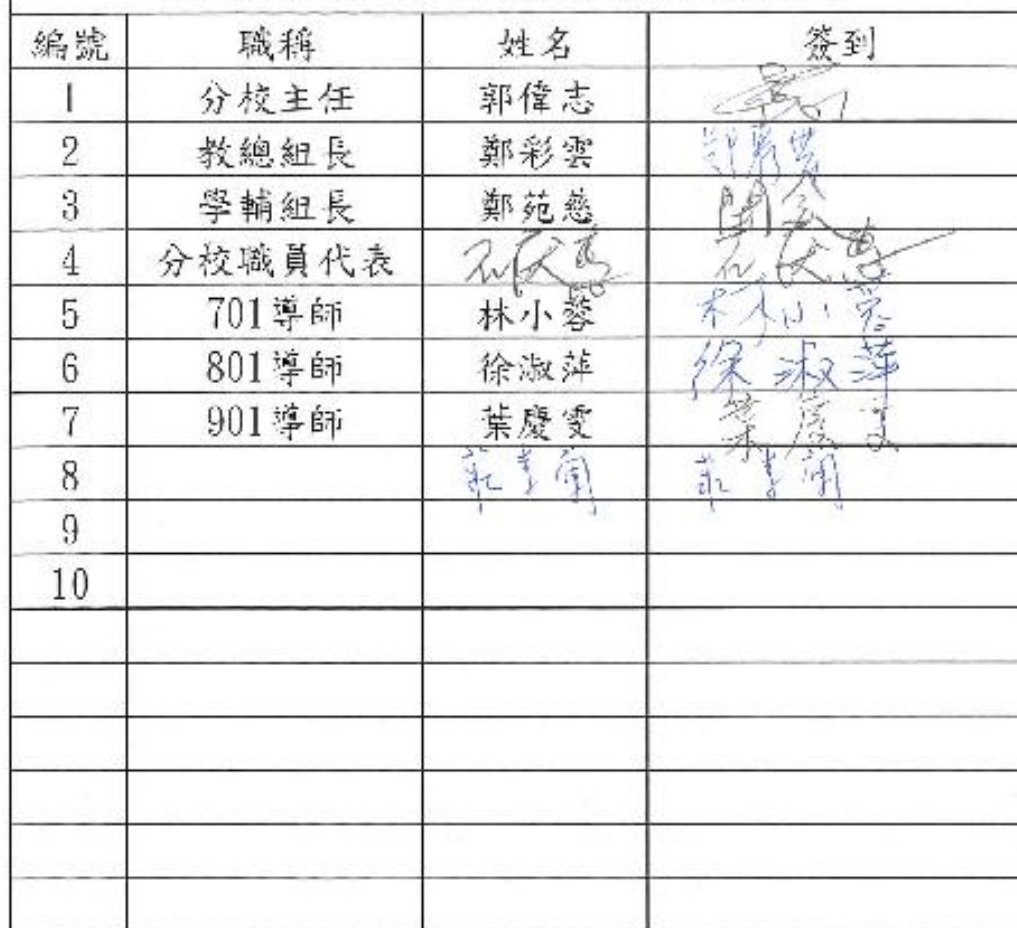 編號 職稱 姓名 簽到
1 分校主任 郭偉志
2 教總組長 鄭彩雲
3 學輔組長 鄭苑慈
4 分校職員代表
5 701導師 林小蓉 林小蓉
6 801導師 徐淑萍 徐淑萍
7 901導師 葉慶雯 葉慶雯
8
9
10